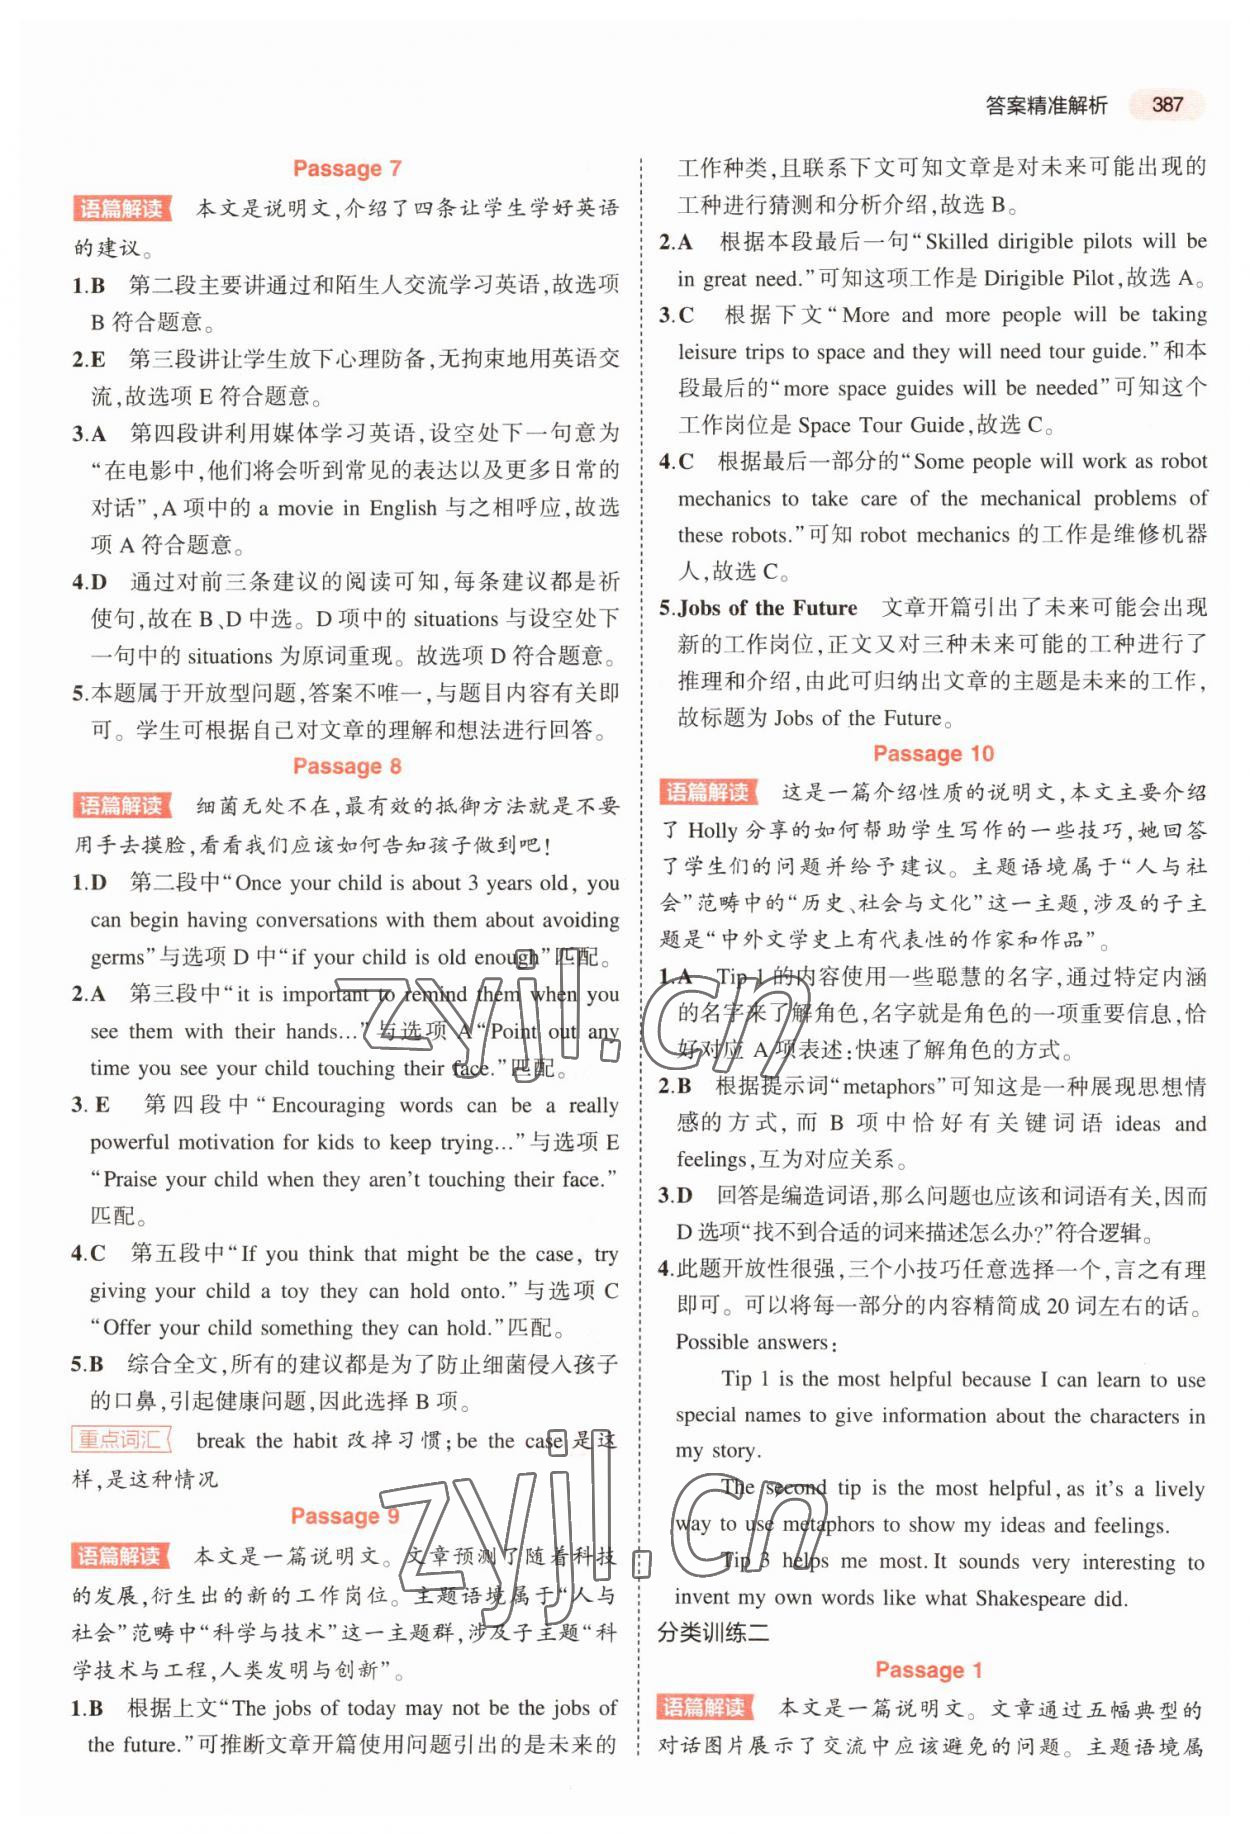 答案精准解析 387
Passage 7
语篇解读 本文是说明文,介绍了四条让学生学好英语
的建议。
1.B 第二段主要讲通过和陌生人交流学习英语,故选项
B 符合题意。
2.E 第三段讲让学生放下心理防备,无拘束地用英语交
流,故选项 E 符合题意。
3.A 第四段讲利用媒体学习英语,设空处下一句意为
“在电影中,他们将会听到常见的表达以及更多日常的
对话”,A 项中的 a movie in English 与之相呼应,故选
项 A 符合题意。
4.D 通过对前三条建议的阅读可知,每条建议都是祈
使句,故在 B、D 中选。D 项中的 situations 与设空处下
一句中的 situations 为原词重现。故选项 D 符合题意。
5.本题属于开放型问题,答案不唯一,与题目内容有关即
可。学生可根据自己对文章的理解和想法进行回答。
Passage 8
语篇解读 细菌无处不在,最有效的抵御方法就是不要
用手去摸脸,看看我们应该如何告知孩子做到吧!
1.D 第二段中“Once your child is about 3 years old, you
can begin having conversations with them about avoiding
germs”与选项 D 中“if your child is old enough”匹配。
2.A 第三段中“it is important to remind them when you
see them with their hands…”与选项 A“Point out any
time you see your child touching their face.”匹配。
3. E 第四段中“Encouraging words can be a really
powerful motivation for kids to keep trying…”与选项 E
“Praise your child when they aren't touching their face.”
匹配。
4.C 第五段中“If you think that might be the case, try
giving your child a toy they can hold onto.”与选项 C
“Offer your child something they can hold.”匹配。
5.B 综合全文,所有的建议都是为了防止细菌侵入孩子
的口鼻,引起健康问题,因此选择 B 项。
重点词汇 break the habit 改掉习惯;be the case 是这
样,是这种情况
Passage 9
语篇解读 本文是一篇说明文。文章预测了随着科技
的发展,衍生出的新的工作岗位。主题语境属于“人与
社会”范畴中“科学与技术”这一主题群,涉及子主题“科
学技术与工程,人类发明与创新”。
1.B 根据上文“The jobs of today may not be the jobs of
the future.”可推断文章开篇使用问题引出的是未来的
工作种类,且联系下文可知文章是对未来可能出现的
工种进行猜测和分析介绍,故选 B。
2.A 根据本段最后一句“Skilled dirigible pilots will be
in great need.”可知这项工作是 Dirigible Pilot,故选 A。
3.C 根据下文“More and more people will be taking
leisure trips to space and they will need tour guide.”和本
段最后的“more space guides will be needed”可知这个
工作岗位是 Space Tour Guide,故选 C。
4.C 根据最后一部分的“Some people will work as robot
mechanics to take care of the mechanical problems of
these robots.”可知 robot mechanics 的工作是维修机器
人,故选 C。
5.Jobs of the Future 文章开篇引出了未来可能会出现
新的工作岗位,正文又对三种未来可能的工种进行了
推理和介绍,由此可归纳出文章的主题是未来的工作,
故标题为 Jobs of the Future。
Passage 10
语篇解读 这是一篇介绍性质的说明文,本文主要介绍
了 Holly 分享的如何帮助学生写作的一些技巧,她回答
了学生们的问题并给予建议。主题语境属于“人与社
会”范畴中的“历史、社会与文化”这一主题,涉及的子主
题是“中外文学史上有代表性的作家和作品”。
1.A Tip 1 的内容使用一些聪慧的名字,通过特定内涵
的名字来了解角色,名字就是角色的一项重要信息,恰
好对应 A 项表述:快速了解角色的方式。
2.B 根据提示词“metaphors”可知这是一种展现思想情
感的方式,而 B 项中恰好有关键词语 ideas and
feelings,互为对应关系。
3.D 回答是编造词语,那么问题也应该和词语有关,因而
D 选项“找不到合适的词来描述怎么办?”符合逻辑。
4.此题开放性很强,三个小技巧任意选择一个,言之有理
即可。可以将每一部分的内容精简成 20 词左右的话。
Possible answers:
Tip 1 is the most helpful because I can learn to use
special names to give information about the characters in
my story.
The second tip is the most helpful, as it's a lively
way to use metaphors to show my ideas and feelings.
Tip 3 helps me most. It sounds very interesting to
invent my own words like what Shakespeare did.
分类训练二
Passage 1
语篇解读 本文是一篇说明文。文章通过五幅典型的
对话图片展示了交流中应该避免的问题。主题语境属
zyjl.cn
zyjl.cn